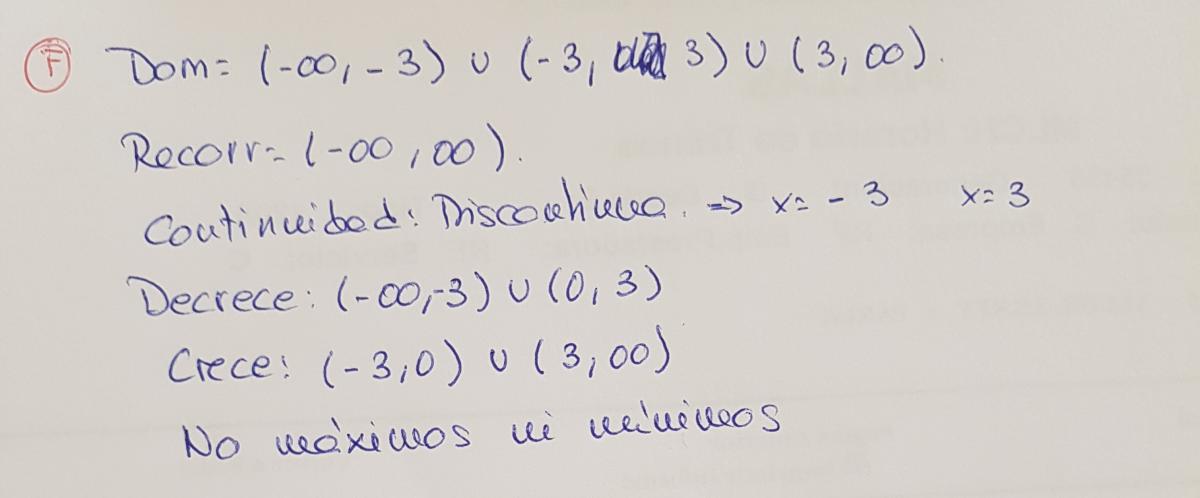 F Dom= (-∞, -3) ∪ (-3, 3) ∪ (3, ∞).
Recorr= (-∞, ∞).
Continuidad: Discontinua. ⇒ x= -3 x= 3
Decrece: (-∞,-3) ∪ (0, 3)
Crece: (-3,0) ∪ (3,∞)
No máximos ni mínimos